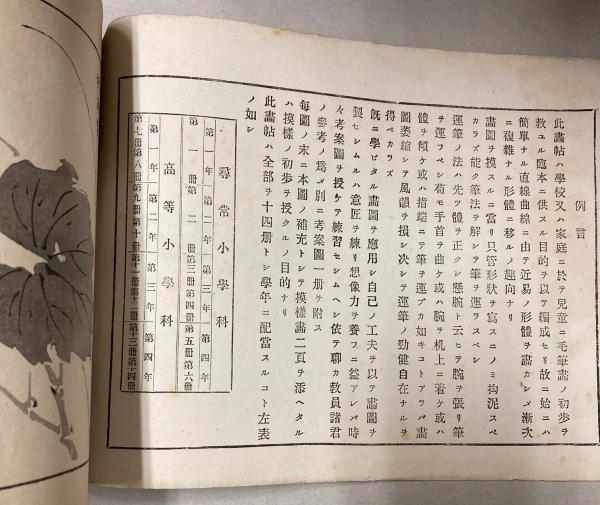 例言
此畫帖ハ學校又ハ家庭ニ於テ兒童ニ毛筆畫ノ初歩ヲ
教ユル臨本ニ供スル目的ヲ以テ編成セリ故ニ始ニハ
簡單ナル直線曲線ニ由テ近易ノ形體ヲ畫カシメ漸次
ニ複雜ナル形體ニ移ルノ趣向ナリ
畫圖ヲ摸スルニ當リ只管形狀ヲ寫スニノミ拘泥スベ
カラズ能ク筆法ヲ解シテ筆ヲ運ラスベシ
運筆ノ法ハ先ツ體ヲ正クシ懸腕ト云ヒテ腕ヲ張リ筆
ヲ運フベシ苟モ手首ヲ曲ケ或ハ腕ヲ机上ニ着ケ或ハ
體ヲ傾ケ或ハ指端ニテ筆ヲ運ブカ如キコトアラバ畫
圖萎縮シテ風韻ヲ損シ次シテ運筆ノ勁健自在ナルヲ
得ベカラズ
既ニ學ビタル畫圖ヲ應用シ自己ノ工夫ヲ以テ畫圖ヲ
製セシムルハ意匠ヲ練リ想像力ヲ養フニ益アレバ時
々考案圖ヲ授ケテ練習セシムヘシ依テ聊カ教員諸君
ノ參考ノ爲メ別ニ考案圖一册ヲ附ス
毎圖ノ末ニ本圖ノ補充トシテ摸樣畫二頁ヲ添ヘタル
ハ摸樣ノ初歩ヲ授クルノ目的ナリ
此畫帖ハ全部ヲ十四册トシ學年ニ配當スルコト左表
ノ如シ
尋常小學科
第一年 第二年 第三年 第四年
第一册 第二册 第三册 第四册 第五册 第六册
高等小學科
第一年 第二年 第三年 第四年
第七册 第八册 第九册 第十册 第十一册 第十二册 第十三册 第十四册